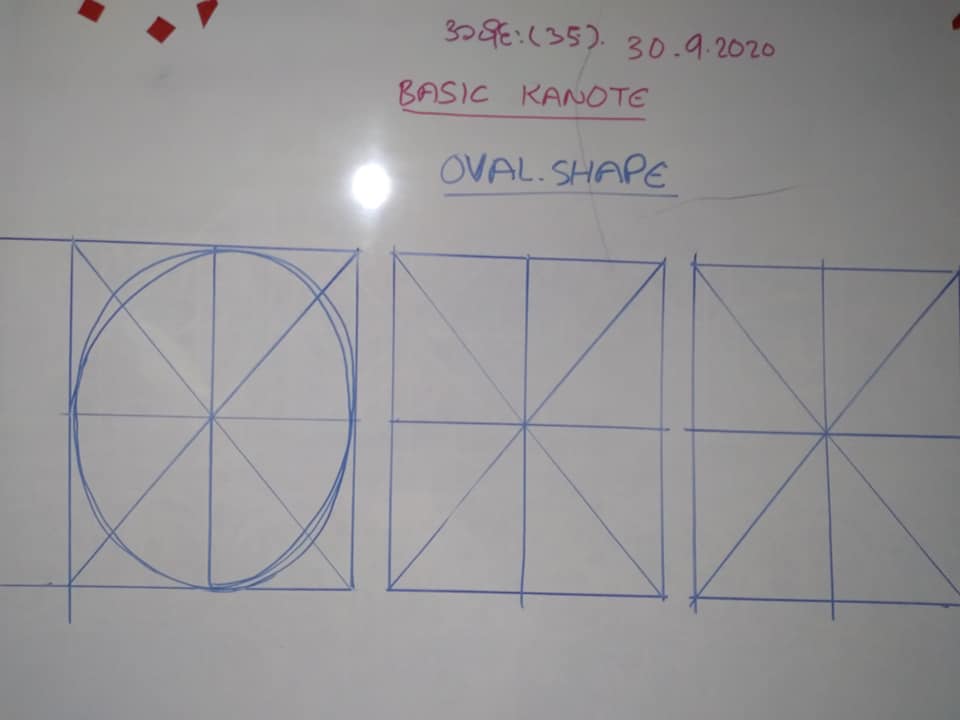 (35). 30.9.2020
BASIC KANOTE
OVAL.SHAPE